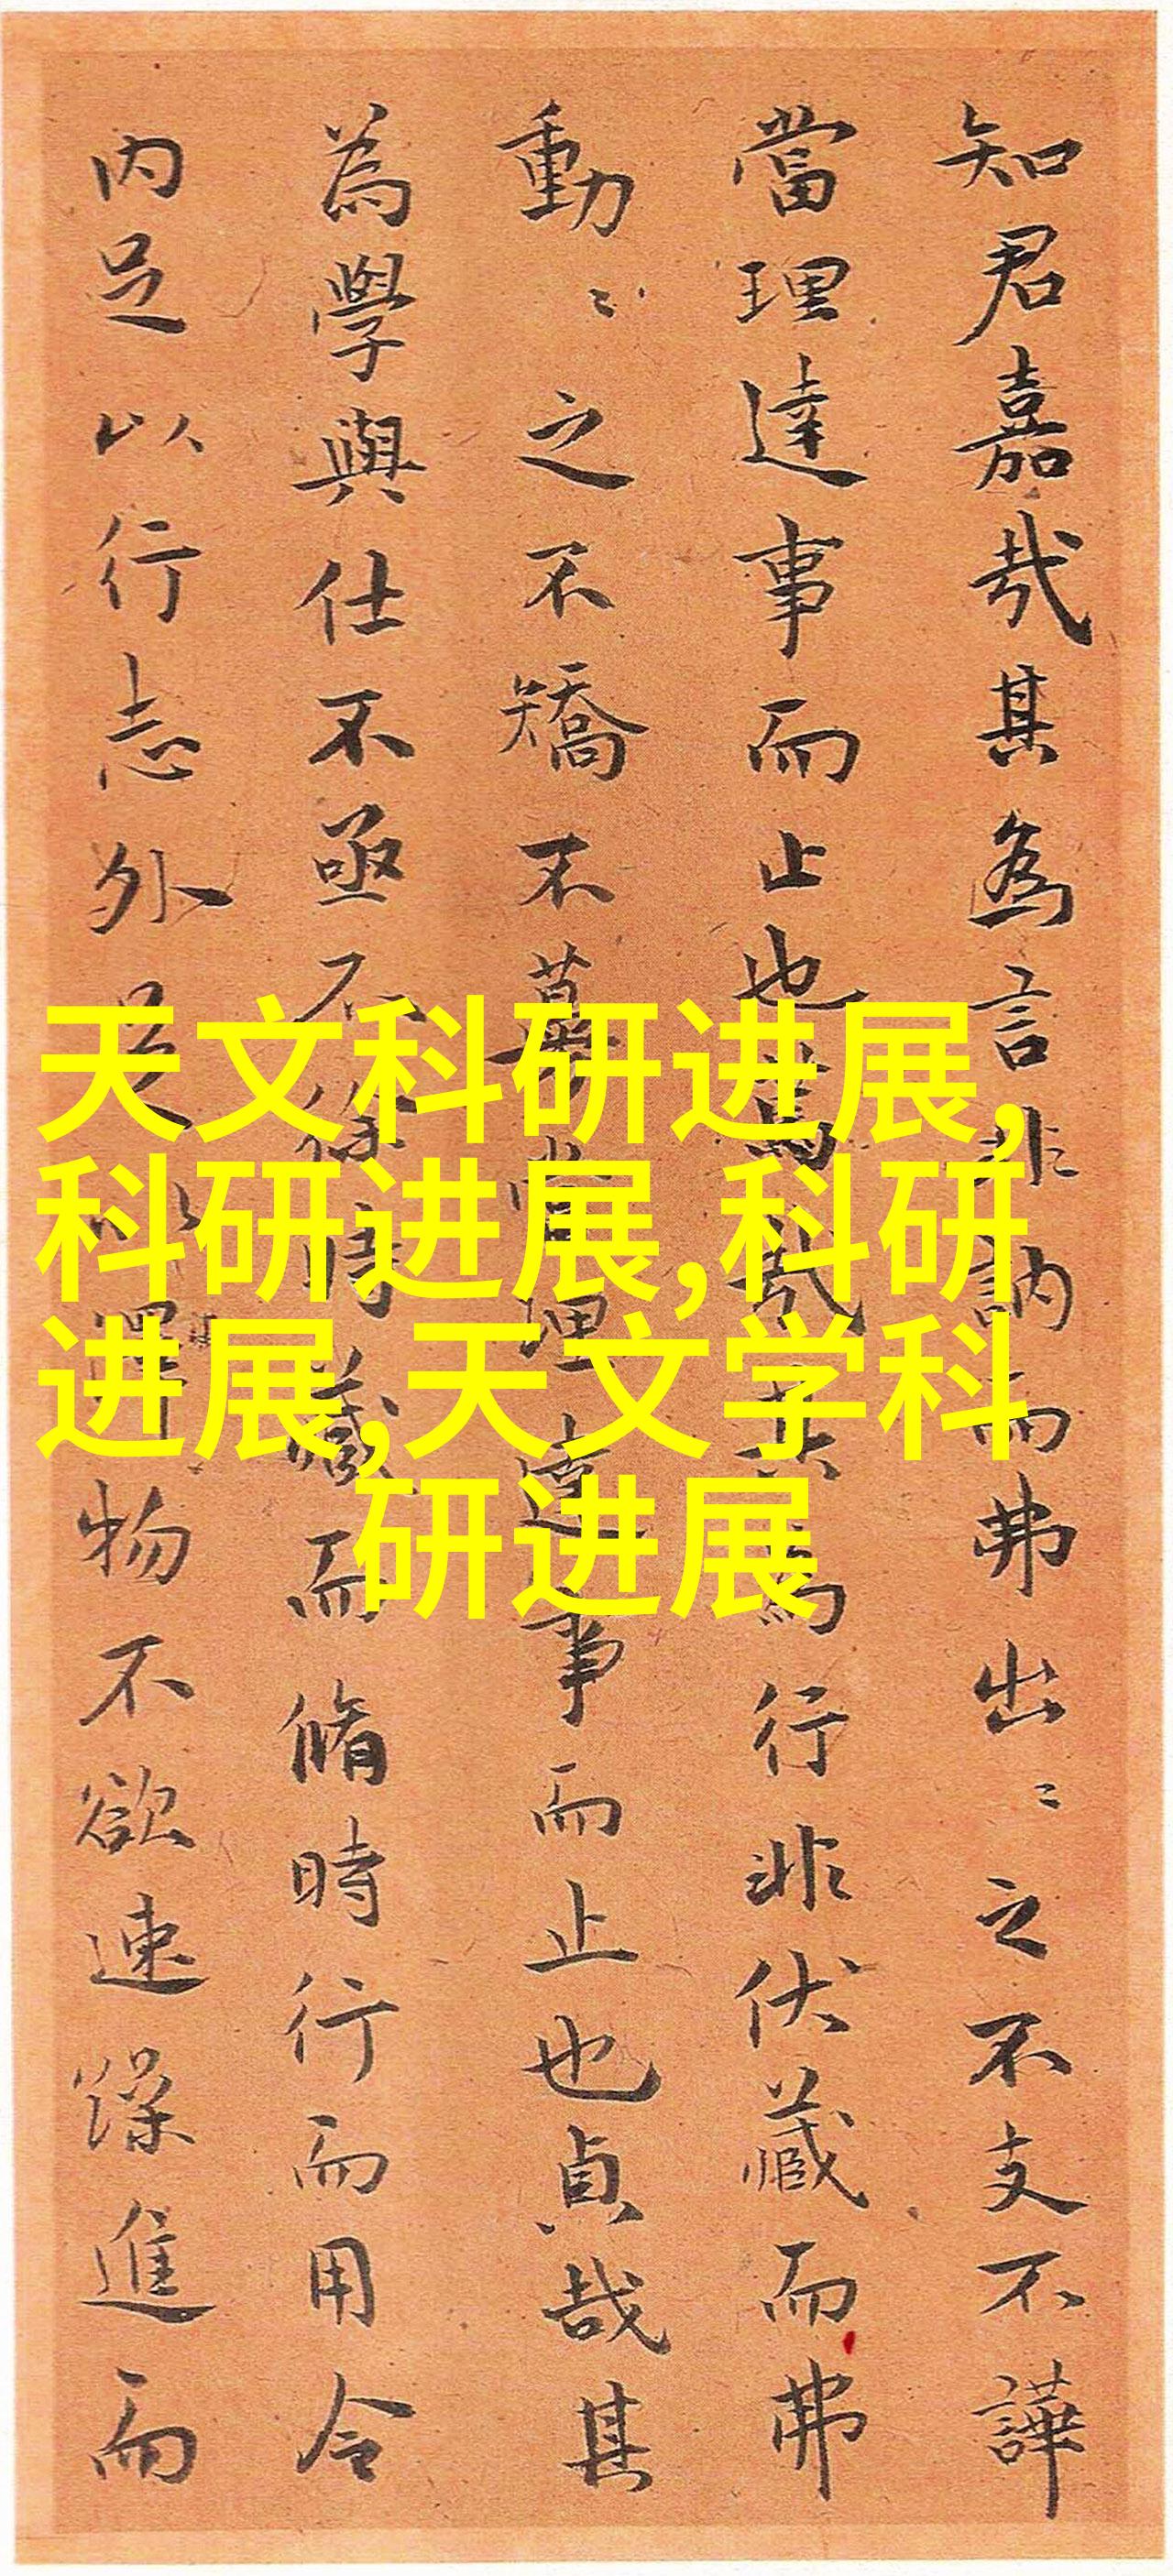 知君嘉哉其為言非訥而弗出〻之不支不譁
當理達事而止也為哉其為行非伏藏而弗
動〻之不矯不當理達事而止也貞哉其
為學與仕不亟不徐時藏而脩時行而用令
内足以行志外足以物不欲速躁進而
天文科研进展,
科研进展,科研
进展,天文学科
研进展